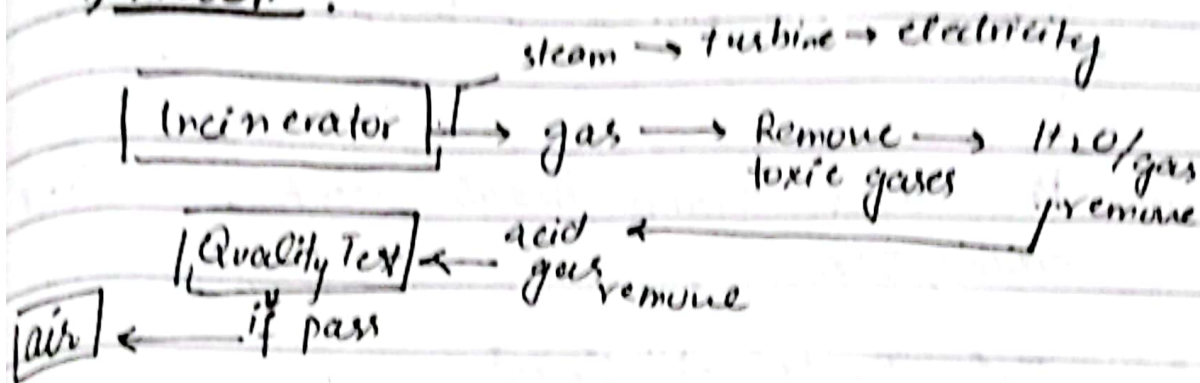 steam → turbine → electricity
Incinerator → gas → Remove → H₂O/gas
toxic gases remove
Quality Test ← acid ←
gas remove
if pass
air ←